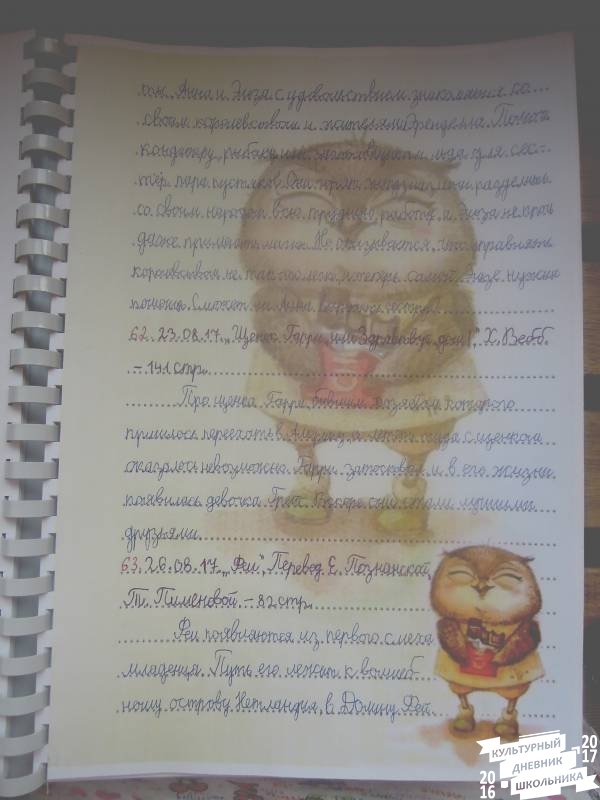 кон. Анна и Эльза с удовольствием знакомятся со
своим королевством и жителями Эренделла. Помочь
кондитеру, рыбаку или заготовщикам льда для сес-
тёр пара пустяков. Они готовы разделить
со своим народом всю трудную работу, а Эльза не прочь
даже применить магию. Но оказывается, что управлять
королевством не так-то легко, и теперь самой Эльзе нужна
помощь. Сможет ли Анна
62. 23.08.17. „Щенок Гарри, или Здравствуй, дом!", Х. Вебб.
– 141 стр.
Про щенка Гарри, бывшим хозяевам которого
пришлось переехать в а лететь туда с щенком
оказалось невозможно. Гарри затосковал, и в его жизни
появилась девочка Грейс. Вскоре они стали лучшими
друзьями.
63. 26.08.17. „Феи", Перевод Е. Познанской,
Т. Пименовой. – 82 стр.
Феи появляются из первого смеха
младенца. Путь его лежит к волшеб-
ному острову Нетландия, в Долину Фей.
КУЛЬТУРНЫЙ
ДНЕВНИК
ШКОЛЬНИКА
2016
2017